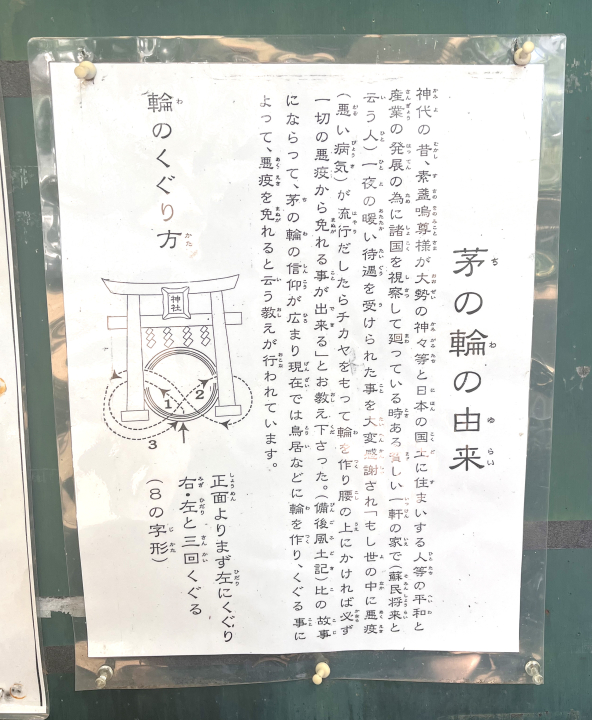 茅の輪の由来
神代の昔、素盞嗚尊様が大勢の神々等と日本の国土に住まいする人等の平和と
産業の発展の為に諸国を視察して廻っている時ある貧しい一軒の家で(蘇民将来と
云う人)一夜の暖い待遇を受けられた事を大変感謝され「もし世の中に悪疫
(悪い病気)が流行だしたらチカヤをもって輪を作り腰の上にかければ必ず
一切の悪疫から免れる事が出来る」とお教え下さった。(備後風土記)比の故事
にならって、茅の輪の信仰が広まり現在では鳥居などに輪を作り、くぐる事に
よって、悪疫を免れると云う教えが行われています。
輪のくぐり方
神社
1
2
3
正面よりまず左にくぐり
右・左と三回くぐる
(8の字形)